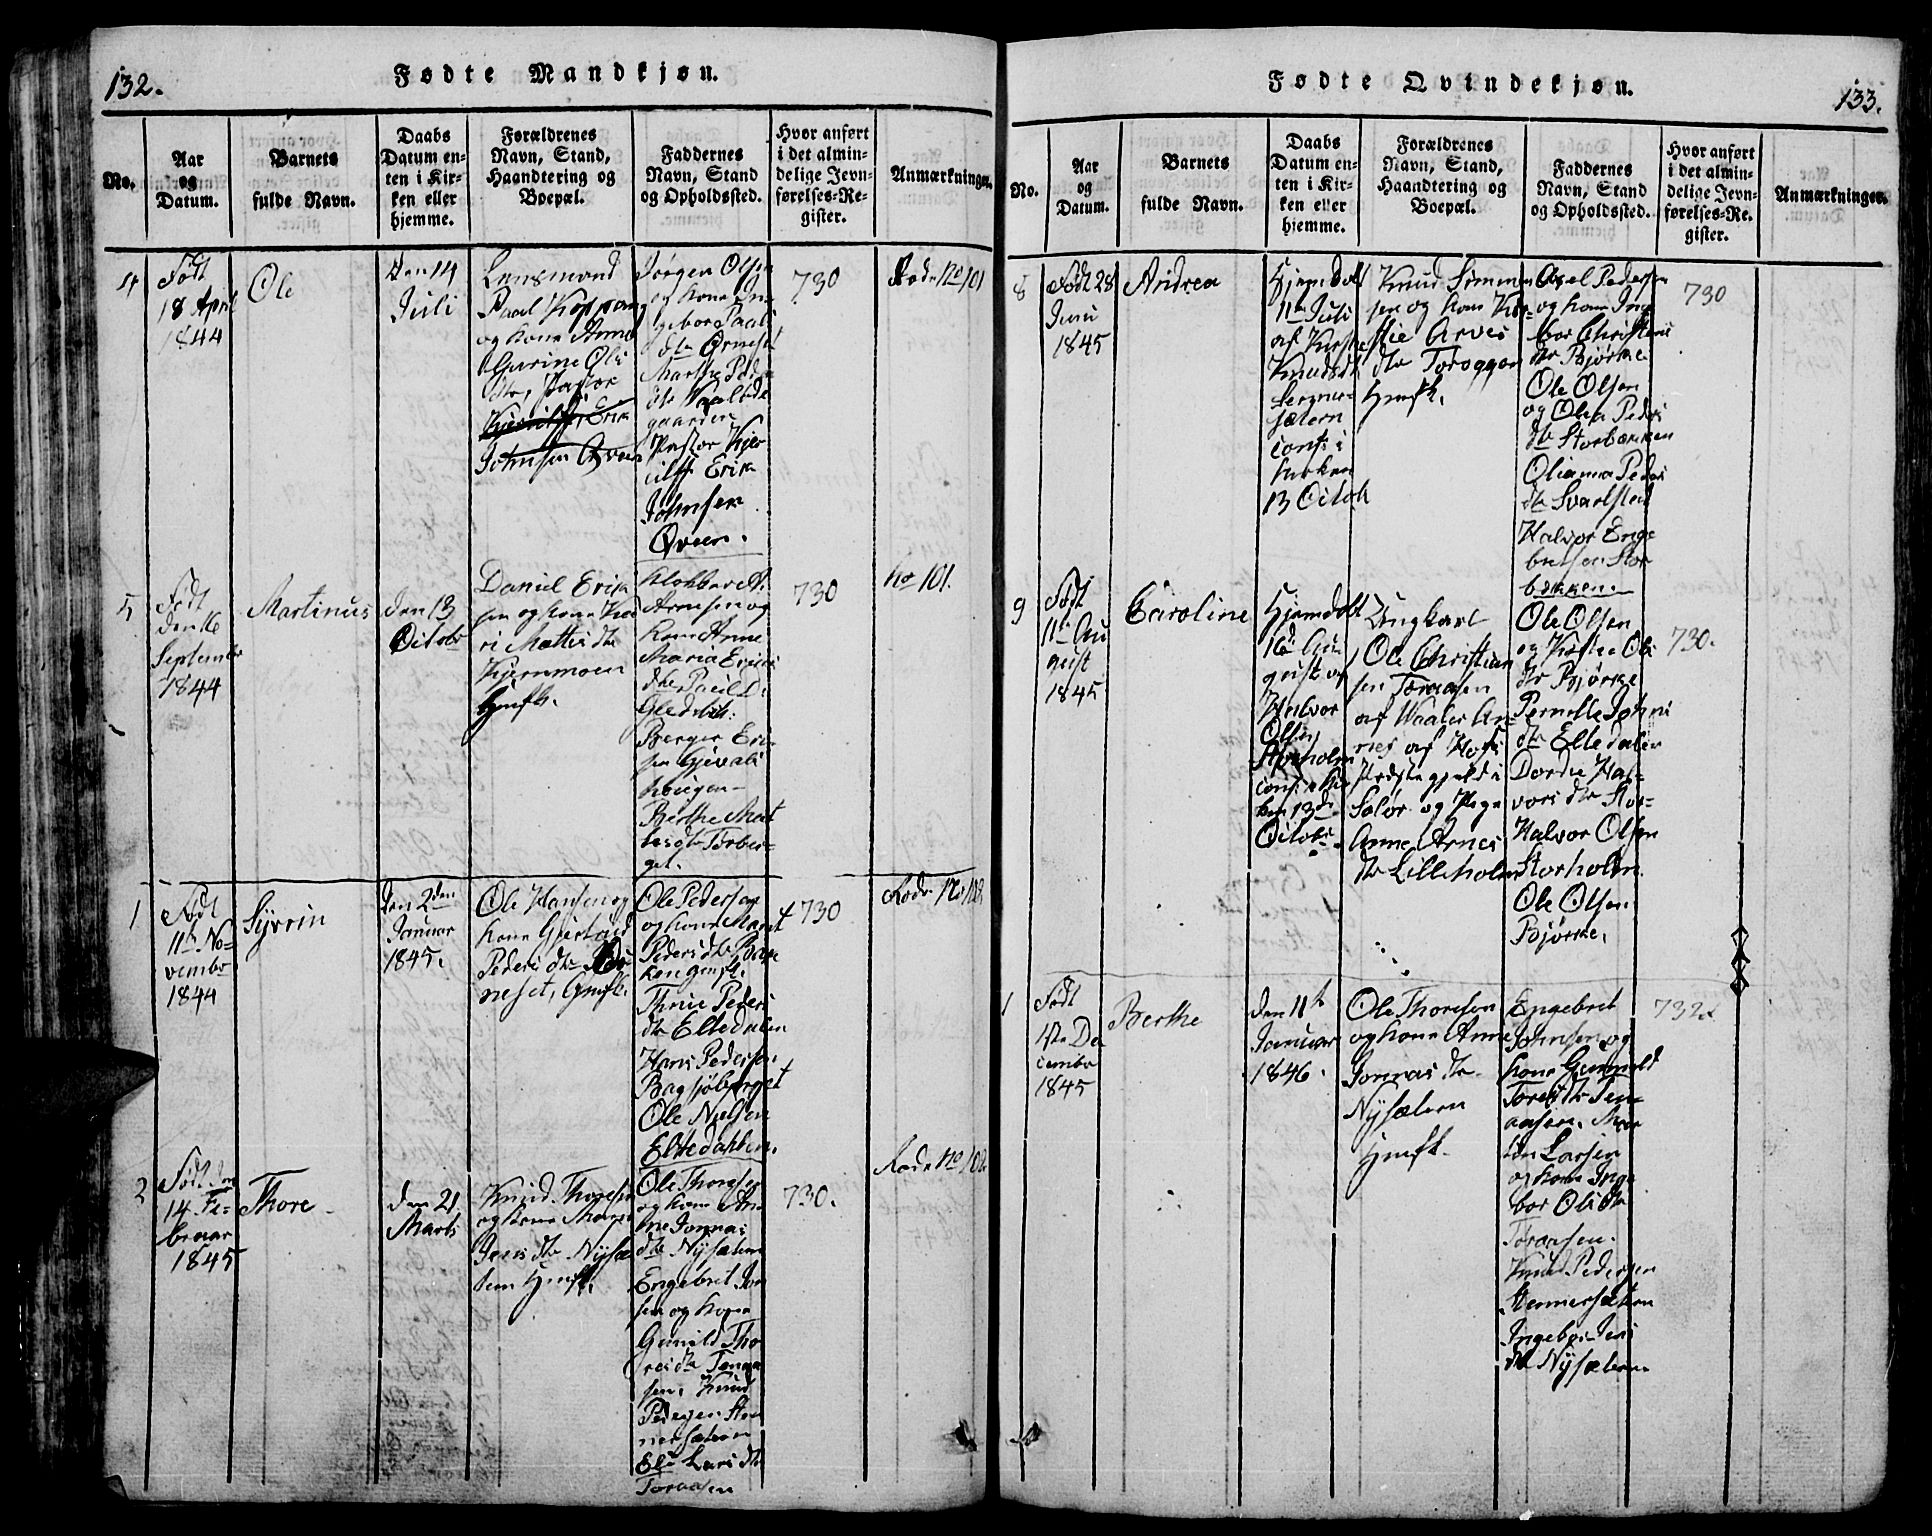 132.
Fødte Mandkjøn.
No.
Aar
og
Datum.
Barnets
fulde Navn.
Daabs
Datum en-
ten i Kir-
ken eller
hjemme.
Forældrenes
Navn, Stand,
Haandtering og
Boepæl.
Faddernes
Navn, Stand
og Opholdssted.
Hvor anført
i det almin-
delige Jevn-
førelses-Re-
gister.
Anmærkninger.
4
Født
18 April
1844
Ole
den 14
Juli
Lensmand
Paal Koppang
og kone Anne
Gurine Ols
dtr, Pastor
Erik
Johnsen Qveen
Jørgen Olsen
og kone In-
gebor Paals
dtr Ornæset
Marthe Peders
dtr
gaarden
Pastor Kjer
ulff Erik
Johnsen
Qveen.
730
Rode No 101
5
Født
den 16
September
1844
Martinus
den 13
Octobr
Daniel Erik
sen og kone Ka
ri Mattis dtr
Kjernmoen
Hmfk.
Klokker A.
Arnesen og
kone Anne
Maria Erics
dtr Paul D.
Berger Eri
sen
haugen
Berthe Mat
tis dtr Torber-
get.
730
No 101.
1
Født
11te No-
vembr
1844
Syvrin
den 2den
Januar
1845.
Ole Hansen og
kone Gjertrud
Peders dtr
neset, Hmfk.
Ole Pedersen
og kone Marit
Peders dtr Bak
ken Hmfk.
Thrine Peders
dtr Eltedalen
Hans Pedersen
Bagsjøberget
Ole Nielsen
Eltedalen.
730
Rode No 102
2
Født den
14 Fe-
bruar
1845
Thore
den 21
Marts
Knud Thoresen
og kone Maren
Jens dtr Nysæ
tern Hmfk.
Ole Thoresen
og kone An-
ne Jonnas
dtr Nysætern
Engebret Jon
sen og kone
Gunild Tho
res dtr Tøraa
sen, Knud
Pedersen Sten
nersætern
Eli Lars dtr
Toraasen
730.
Rode No 102
133.
Fødte Qvindekjøn.
No.
Aar
og
Datum.
Barnets
fulde Navn.
Daabs
Datum en-
ten i Kir-
ken eller
hjemme.
Forældrenes
Navn, Stand,
Haandtering og
Boepæl.
Faddernes
Navn, Stand
og Opholdssted.
Hvor anført
i det almin-
delige Jevn-
førelses-Re-
gister.
Anmærkninger.
8
Født 28
Juni
1845
Andrea
Hjemdøbt
11te Juli
af Kirstie
Knudsdtr
sætern
conf: i
kirken
13 Octob
Knud Simen
sen og kone Kir-
stie Arnes
dtr Toroggen
Hmfk.
Axel Pedersen
og kone Inge
bor Christens
dtr Bjørke
Ole Olsen
og Olea Peders
dtr Storbækken
Oliana Peders
dtr Svartstad
Halvor Enge
bretsen Stor
bækken.
730
9
Født
11te Au
gust
1845
Caroline
Hjemdøbt
16de Au-
gust af
Halvor
Olsen
Storholm
conf: i Kir
ken 13de
Octobr.
Ungkarl
Ole Christian
sen Toraasen
af Waaler An-
nex af Hofs
Præstegjeld i
Solør og Pige
Anne Arnes
dtr Lilleholm
Ole Olsen
og Kirstie Ols
dtr Bjørke
Pernelle Johns
dtr Eltedalen
Dordie Hal-
vors dtr Stor-
Halvor Olsen
Storholm.
Ole Olsen
Bjørke.
730.
1
Født
17te De
cembr
1845
Berthe
den 11te
Januar
1846.
Ole Thoresen
og kone Anne
Jonnas dtr
Nysætern
Hmfk.
Engebret
Johnsen og
kone Gunnild
Tores dtr Tør-
aasen, Mor
ten Larsen
og kone Inge
bor Ols dtr
Toraasen.
Knud Pedersen
Stennersætern
Ingebor Jens
dtr Nysætern
732